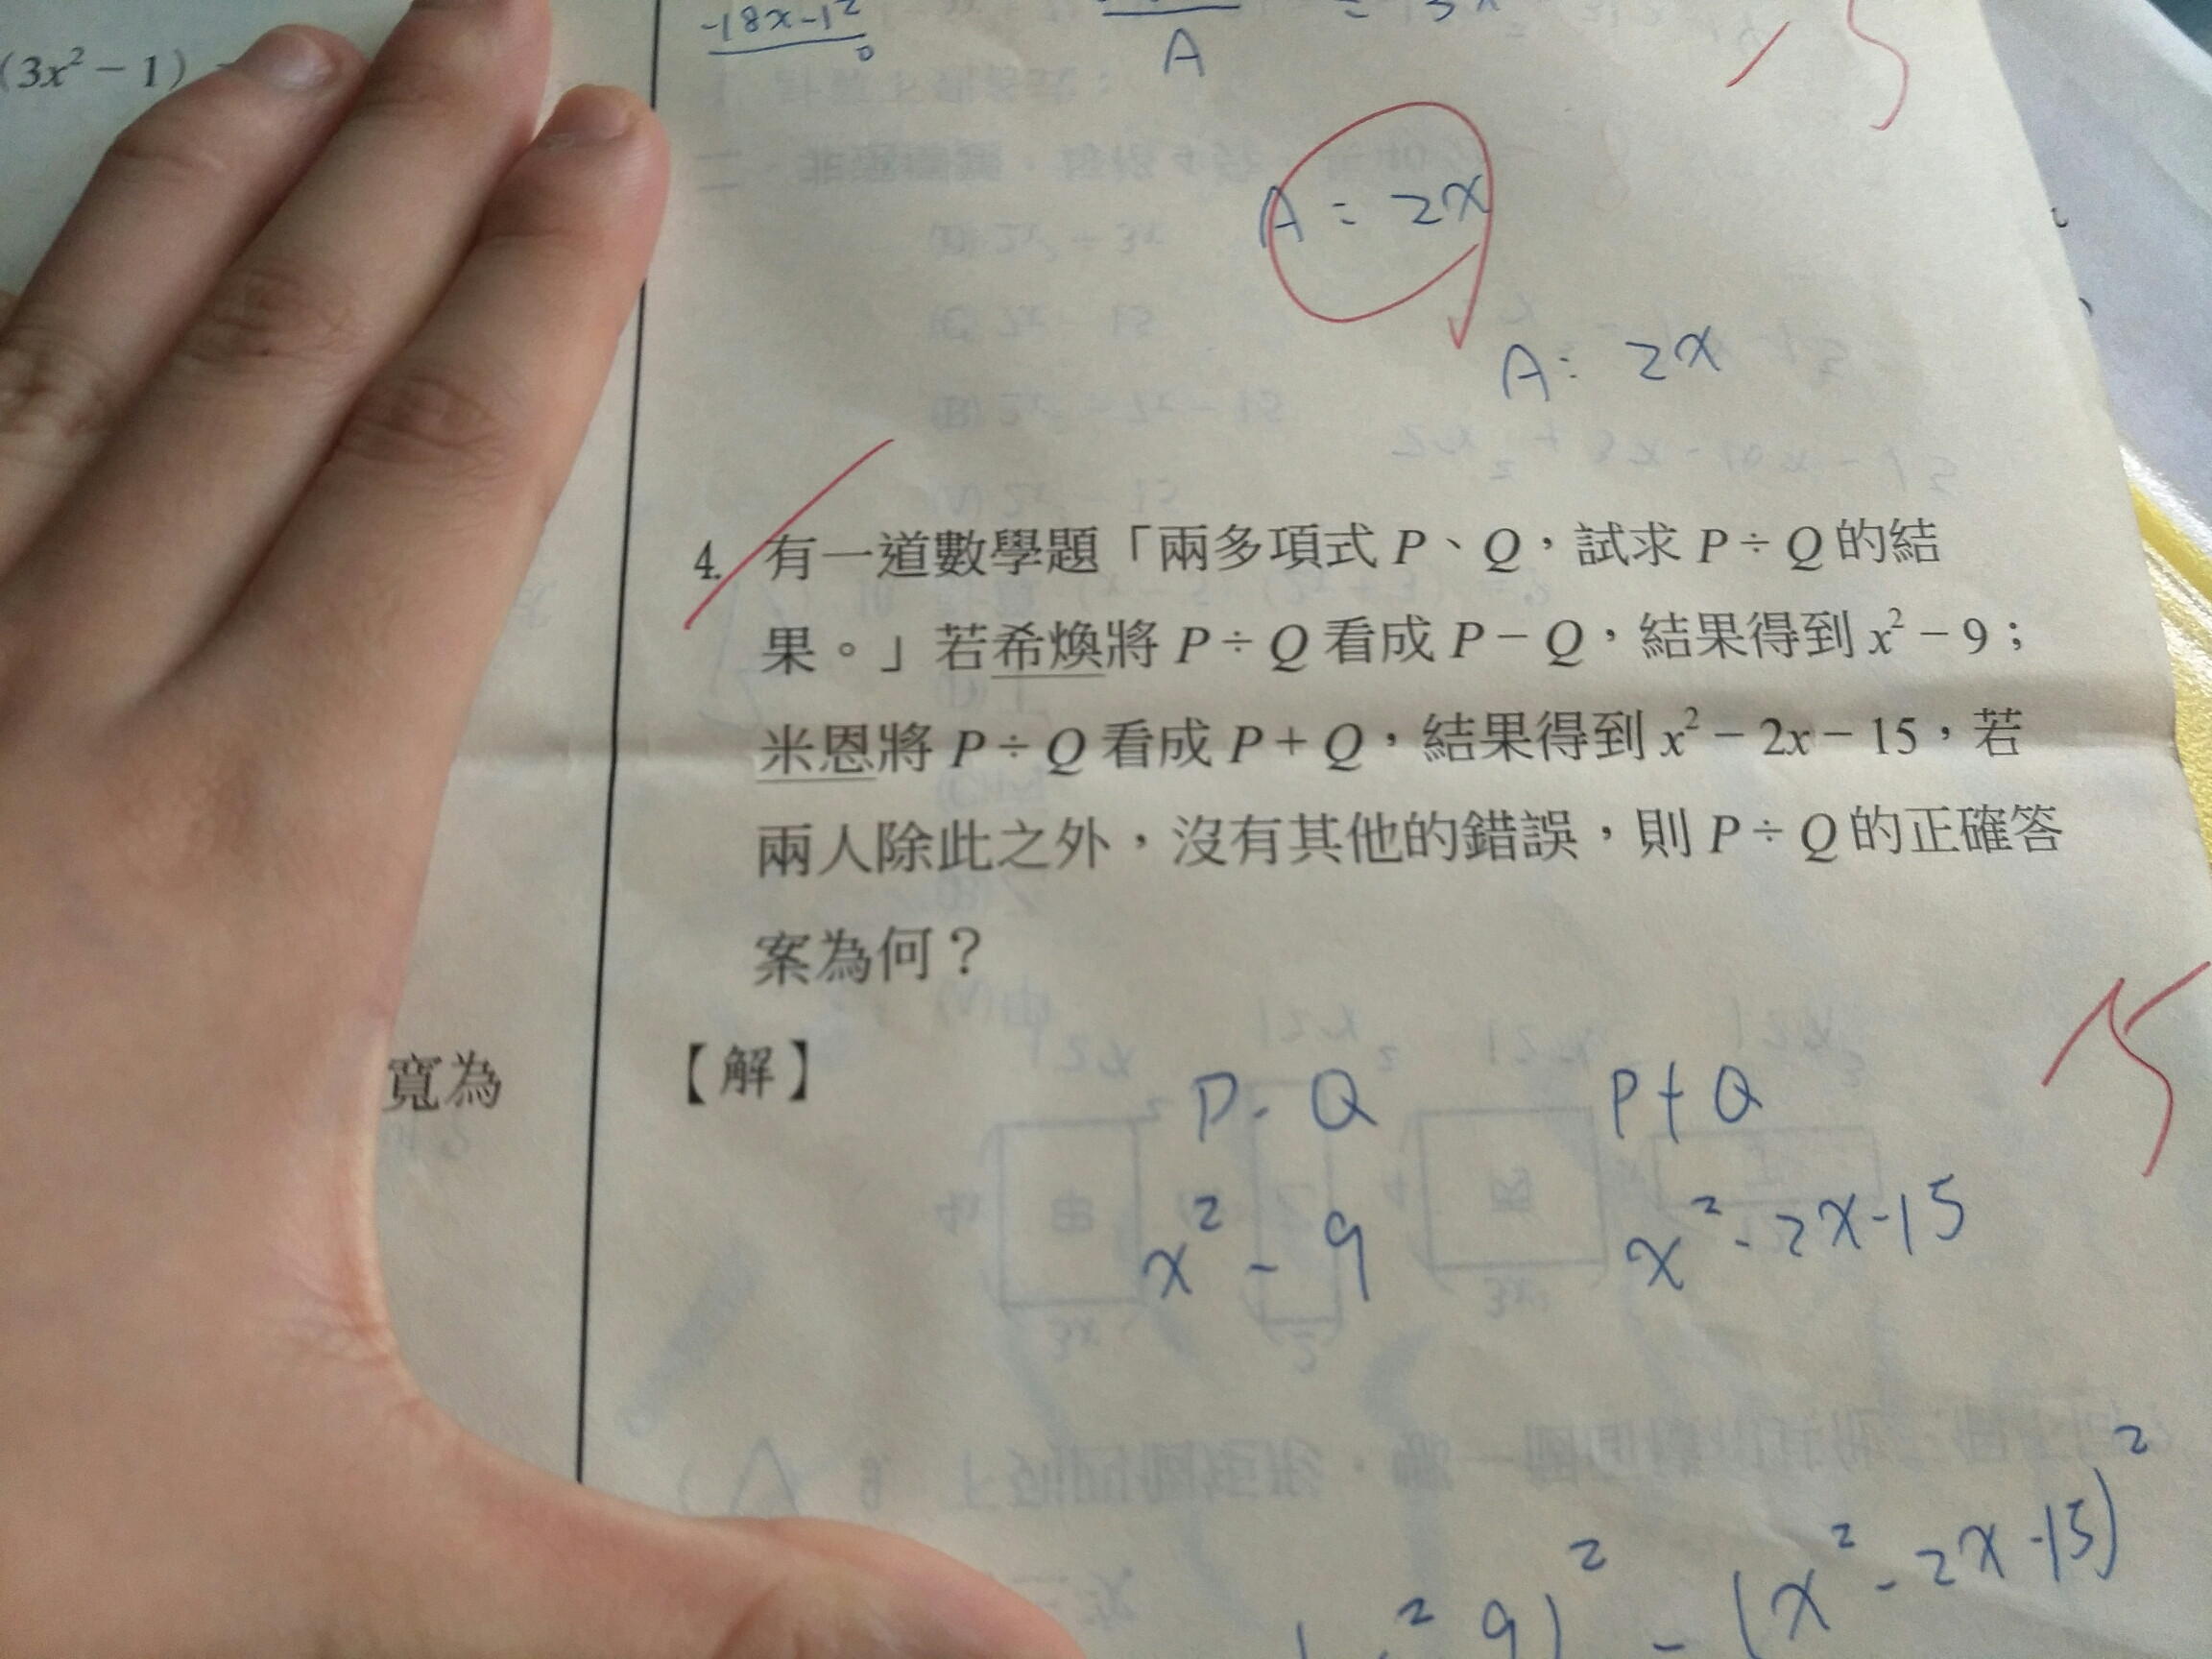 (3x² − 1)
-18x-12
0
A
A = 2x
A = 2x
4. 有一道數學題「兩多項式 P、Q，試求 P ÷ Q 的結
果。」若希煥將 P ÷ Q 看成 P − Q，結果得到 x² − 9；
米恩將 P ÷ Q 看成 P + Q，結果得到 x² − 2x − 15，若
兩人除此之外，沒有其他的錯誤，則 P ÷ Q 的正確答
案為何？
寬為
【解】
P - Q P + Q
x² - 9 x² - 2x - 15
² 9)² - (x² - 2x - 15)²